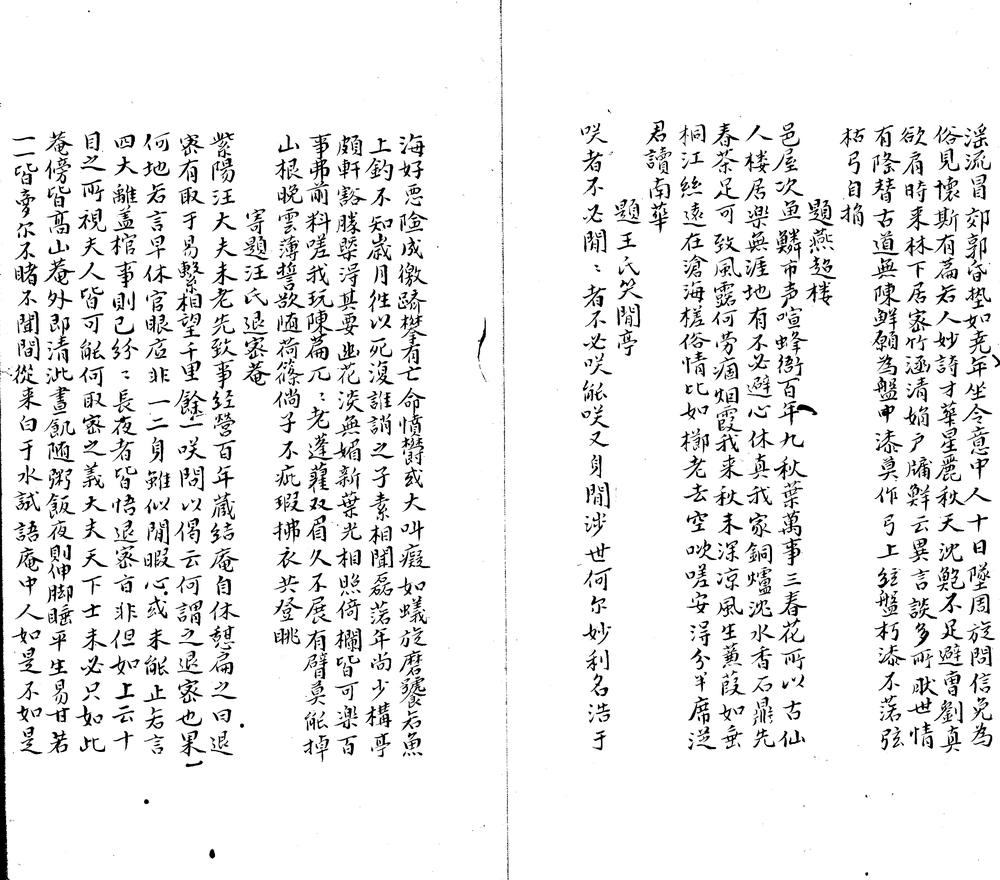 淫流冒郊郭昏垫如堯年坐令意中人十日墜周旋問信免為
俗見懷斯有篇若人妙詩才華星麗秋天沈鮑不足避曹劉真
欲肩時来林下居家竹涵清娟户牖鮮云異言談多所耿世情
有降替古道無陳鮮願為盤中漆莫作弓上弦盤朽漆不落弦
枯弓自捐
題燕超樓
邑屋次魚鱗市声喧蜂衙百年九秋葉萬事三春花所以古仙
人楼居樂無涯地有不必避心休真我家銅爐沈水香石鼎先
春茶足可致風露何勞痼烟霞我来秋未深凉風生蒹葭如垂
桐江絲遠在滄海槎俗情比如擲老去空咲嗟安得分半席従
君讀南華
題王氏笑閒亭
咲者不必閒〻者不必咲能咲又身閒涉世何尔妙利名浩于
海好悪險成徼蹻攀有亡命憤欝或大叫癡如蟻旋磨饕若魚
上釣不知歳月徃以死復誰誚之子素相聞磊落年尚少構亭
頗軒豁勝槩得其要幽花淡無媚新葉光相照倚欄皆可楽百
事弗前料嗟我玩陳篇兀〻老蓬藋双眉久不展有臂莫能掉
山根晚雲薄誓欲随荷篠倘子不疵瑕拂衣共登眺
寄題汪氏退宻菴
紫陽汪大夫未老先致事経營百年蔵结庵自休憩扁之曰退
宻有取于易繫相望千里餘一咲問以偈云何謂之退宻也果
何地若言早休官眼底非一二身雖似閒暇心或未能止若言
四大離盖棺事則已紛〻長夜者皆悟退宻旨非但如上云十
目之所視夫人皆可能何取宻之義大夫天下士未必只如此
菴傍皆高山菴外即清泚晝飢随粥飯夜則伸脚睡平生易甘若
一一皆夢尔不睹不聞間從来白于水試語庵中人如是不如是